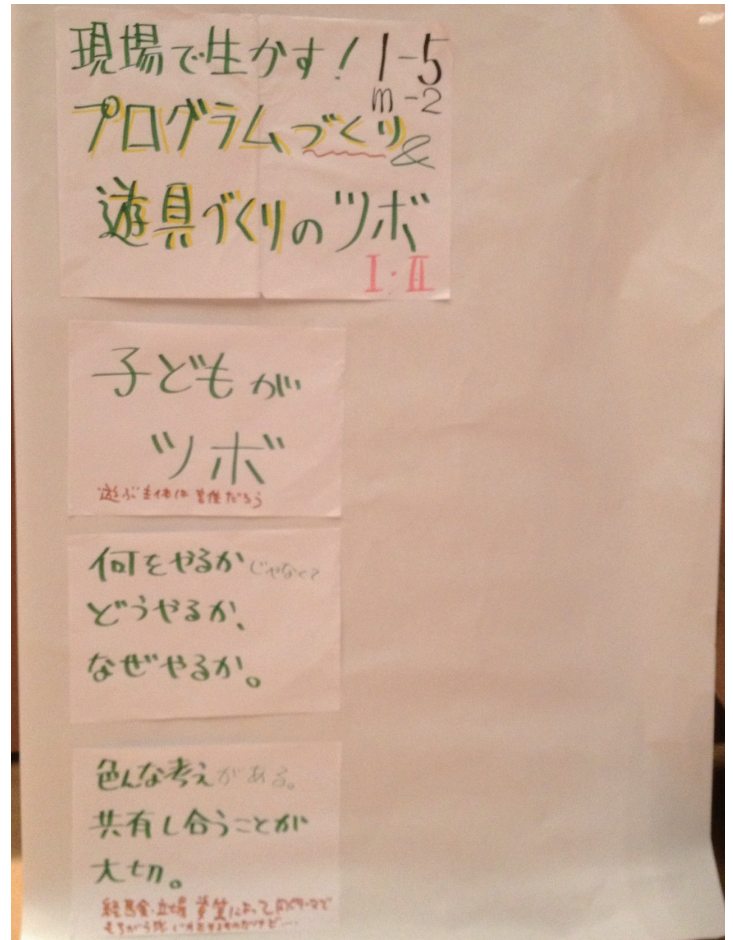 現場で生かす! 1-5
m-2
プログラムづくり&
遊具づくりのツボ
I・II
子どもが
ツボ
遊ぶ主体は皆僕だろう
何をやるかじゃなくて
どうやるか、
なぜやるか。
色んな考えがある。
共有し合うことが
大切。
経験・立場 資質によって